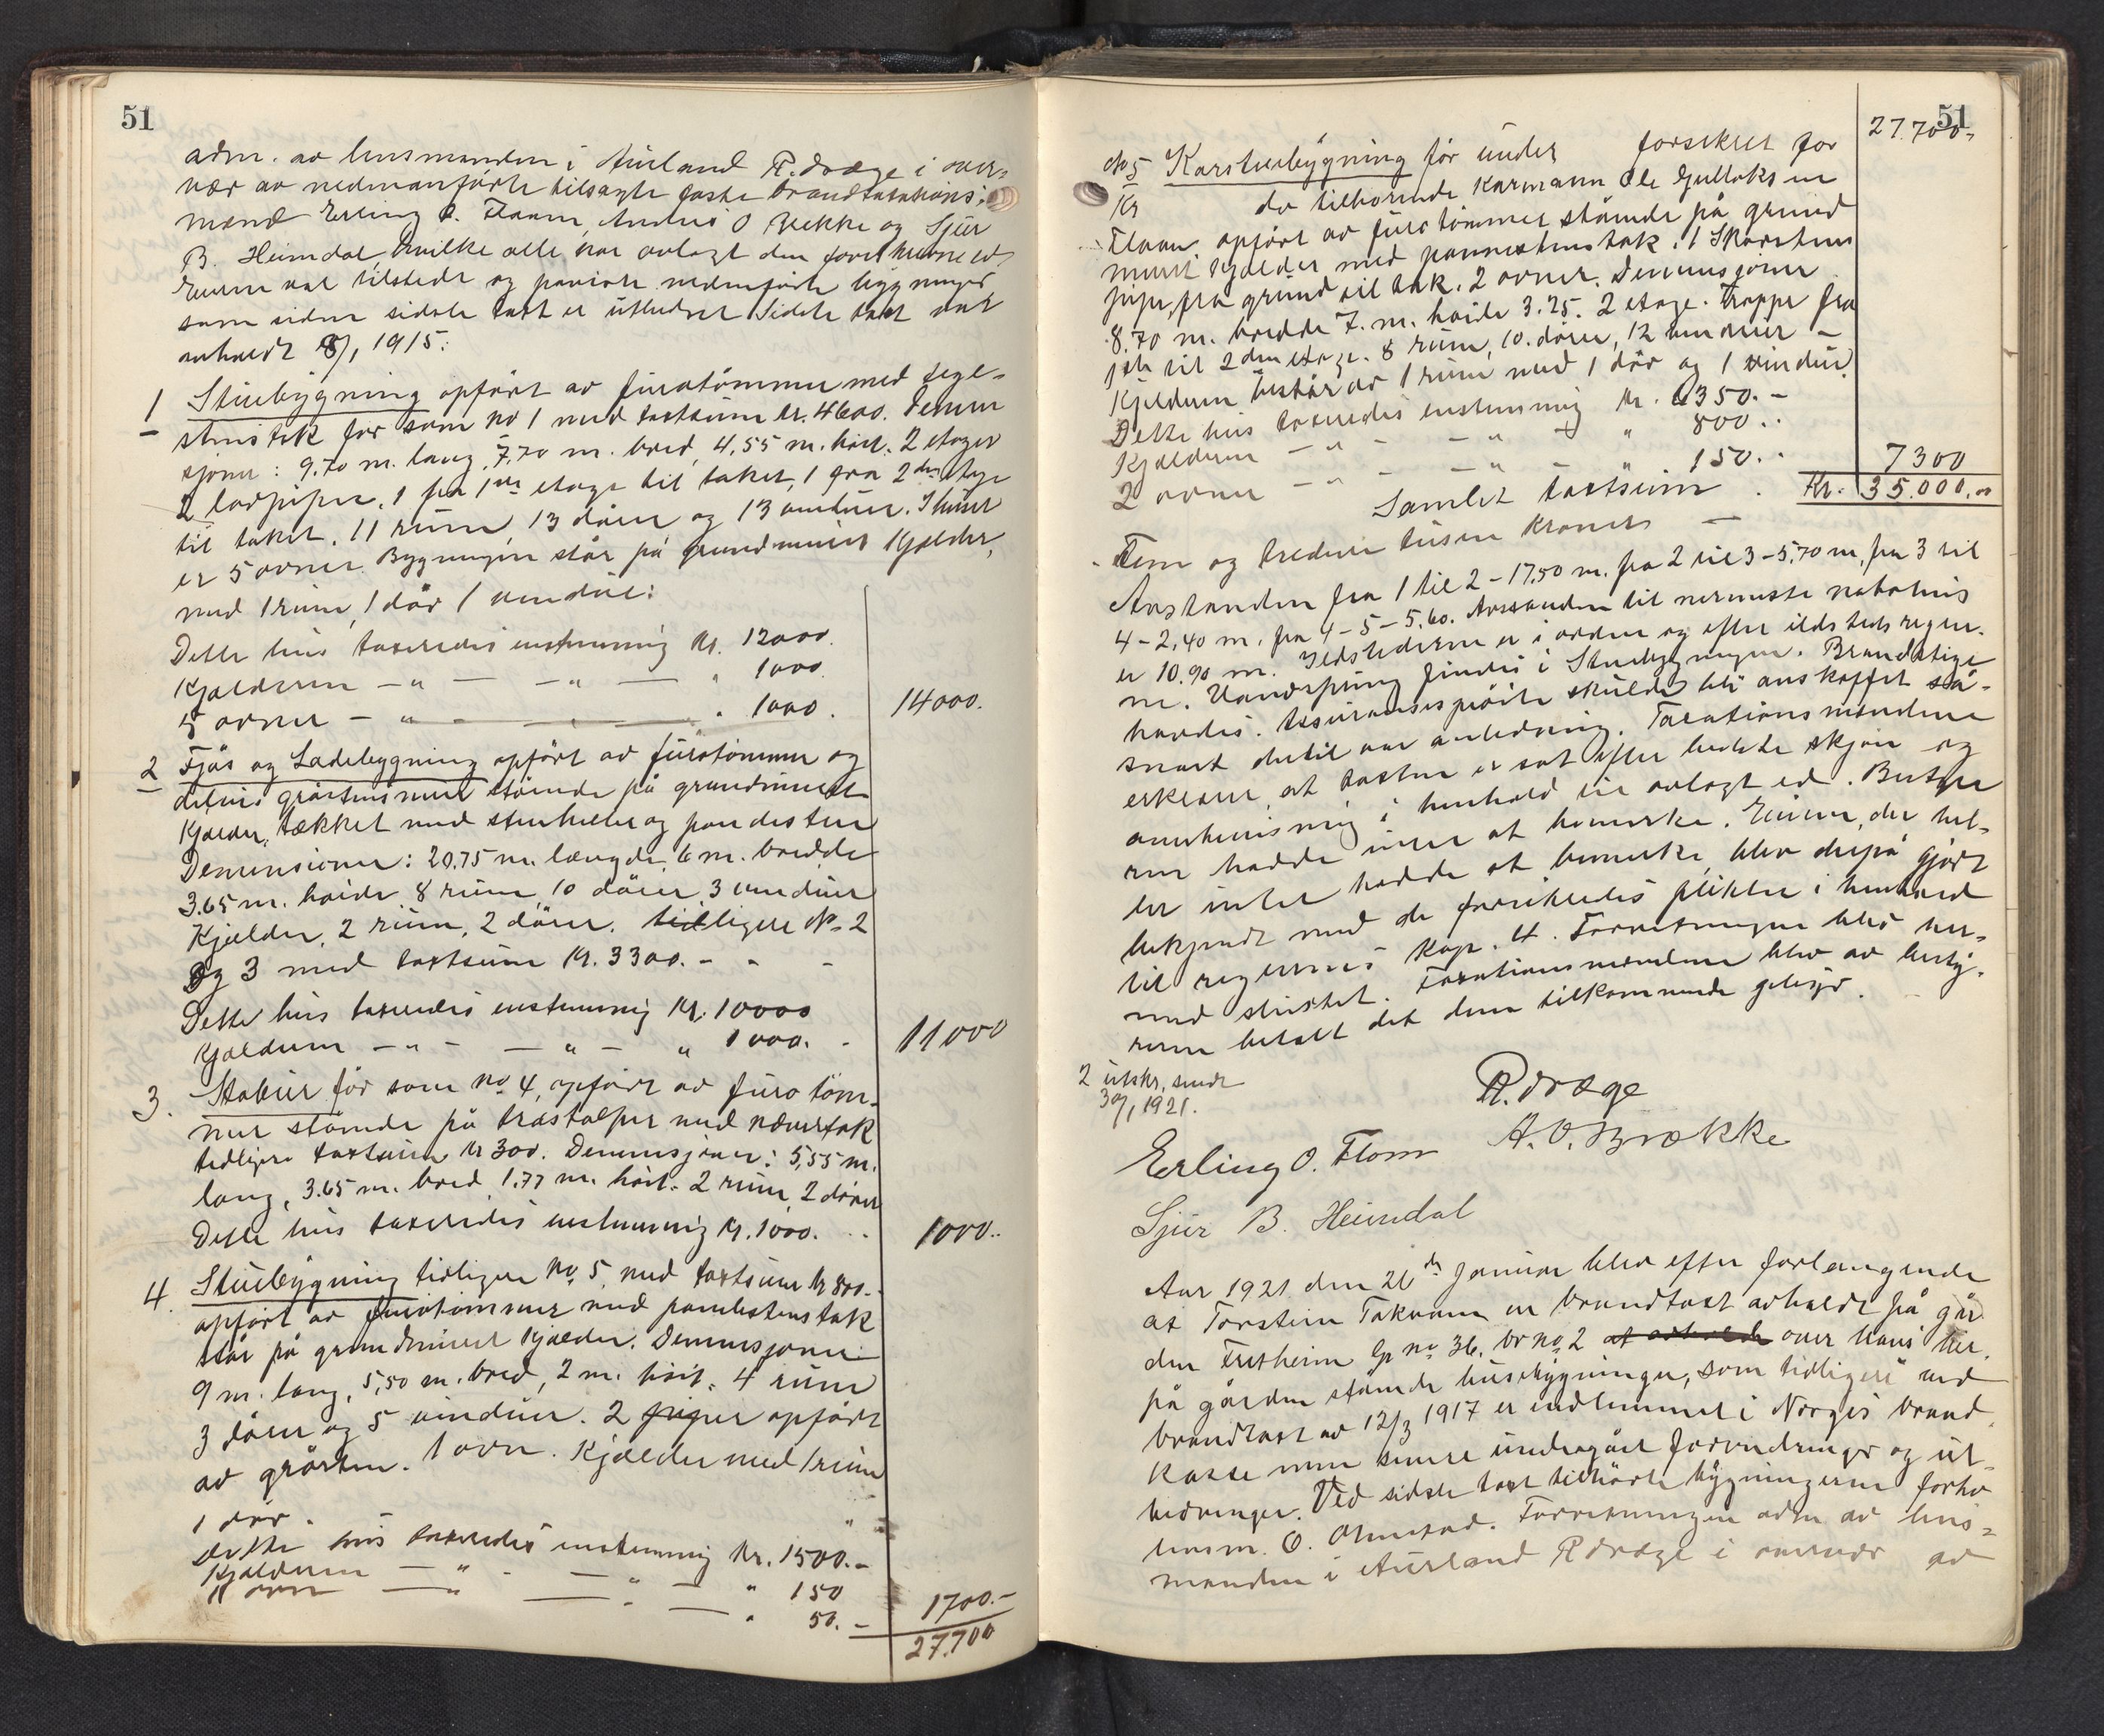 51
adm. av lensmanden i Aurland R. Dræge i over-
vær av nedenanførte tilsagte faste brandtakstions-
mænd Erling O. Flaam, Anders O Brekke og Sjur
B. Heimdal, hvilke alle har avlagt den foreskrevne ed.
Eieren var tilstede og paaviste nedenførte bygninger
som siden sidste takst er utbedret Sidste takst var
avholdt 8/1 1915:
1 Stuebygning opført av furutømmer med tegl-
stenstak før som no 1 med takstsum kr. 4600. Demen
sjoner: 9.70 m. lang, 7,70 m. bred, 4,55 m. høit. 2 etager
2 ladpiper. 1 fra 1ste etage til taket, 1 fra 2den etage
til taket. 11 rum, 13 dører og 13 vinduer. I huset
er 5 ovner. Bygningen står på grundmuret kjelder,
med 1 rum, 1 dør 1 vindue:
Dette hus takseredes enstemmig kr. 12000.
Kjælderen - " - - " - " 1000.
5 ovner - " - " 1000. 14000.
2 Fjøs og Ladebygning opført av furutømmer og
delvis gråstensmur stående på grundmuret
Kjælder, tækket med stenheller og pandesten
Demensioner: 20.75 m. længde, 6 m. bredde
3.65 m. høide. 8 rum, 10 dører, 3 vinduer
Kjelder, 2 rum, 2 dører. tidligere No 2
og 3 med takstsum kr. 3300. - - -
Dette hus takseredes enstemmig kr. 10000
Kjælderen - " - - " - " 1000. - 11000
3. Stabur før som no 4, opført av furutøm-
mer stående på træstolper med nævertak
tidligere takstsum kr 300. Demensjoner: 5,55 m.
lang, 3.65 m. bred 1.77 m. høit. 2 rum, 2 dører
Dette hus takseredes enstemmig kr. 1000. .. 1000..
4. Stuebygning tidligere no 5 med takstsum kr 800.-
opført av furutømmer med pandestenstak
står på grundmuret kjælder. Demensjoner
9 m. lang, 5,50 m. bred, 2 m. høit. 4 rum
3 dører og 5 vinduer. 2 piper opført
av gråsten. 1 ovn. Kjelder med 1 rum
1 dør.
Dette hus takseredes enstemmig kr. 1500.-
Kjælderen - " - - " - " 150
1 ovn - " - " 50.- 1700.-
27.700
51
27.700,
No 5 Karstuebygning før under forsikret for
Kr do tilhørende Karmann Ole Gulleksen
Flaam opført av furutømmer stående på grund
muret kjælder med pannestenstak. 1 Skorstens
pipe, fra grund til tak. 2 ovner. Demensjoner
8.70 m. bredde 7. m. høide 3.25. 2 etage. Trappe fra
1ste til 2den etage. 8 rum, 10. dører, 12 vinduer -
Kjelderen består av 1 rum med 1 dør og 1 vindue
Dette hus takseredes enstemmig kr. 6350.-
Kjælderen - " - - " - " 800..
2 ovner - " - - " - 150.. 7300
Samlet takstsum . Kr. 35.000.00
Fem og tredive tusen kroner -
Avstanden fra 1 til 2 - 17,50 m. fra 2 til 3 - 5,70 m, fra 3 til
4 - 2,40 m. fra 4 - 5 - 5.60. Avstanden til nermeste nabohus
er 10.90 m. Ildstederne er i orden og efter ildsteds regler-
ne. Vandspring findes i Stuebygningen. Brandstige
havdes. Assuransesprøite skulde bli anskaffet så-
snart dertil var anledning. Taxationsmændene
erklærer, at taksten er sat efter bedste skjøn og
overbevisning i henhold til avlagt ed. Besty-
rer hadde intet at bemerke. Eieren, der hel-
ler intet hadde at bemerke, blev derpå gjort
bekjendt med de forsikredes plikter i henhold
til reglernes kap. 4. Forretningen blev her-
med sluttet. Taxationsmændene blev av besty-
reren betalt det dem tilkommende gebyr.
2 utskr. sendt
30/1 1921.
R. Dræge
Erling O. Flom A. O. Brække
Sjur B. Heimdal
Aar 1921 den 26de januar blev efter forlangende
af Torstein Takvam en brandtakst avholdt på går
den Fretheim G no 36. br no 2 over hans her
på gården stående husebygninger, som tidligere ved
brandtakst av 12/3 1917 er indlemmet i Norges brand
kasse men senere undergået forandringer og ut-
bedringer. Ved sidste takst tilhørte bygningerne forhv
lensm. O. Onstad. Forretningen adm av lens=
manden i Aurland R Dræge i overvær av